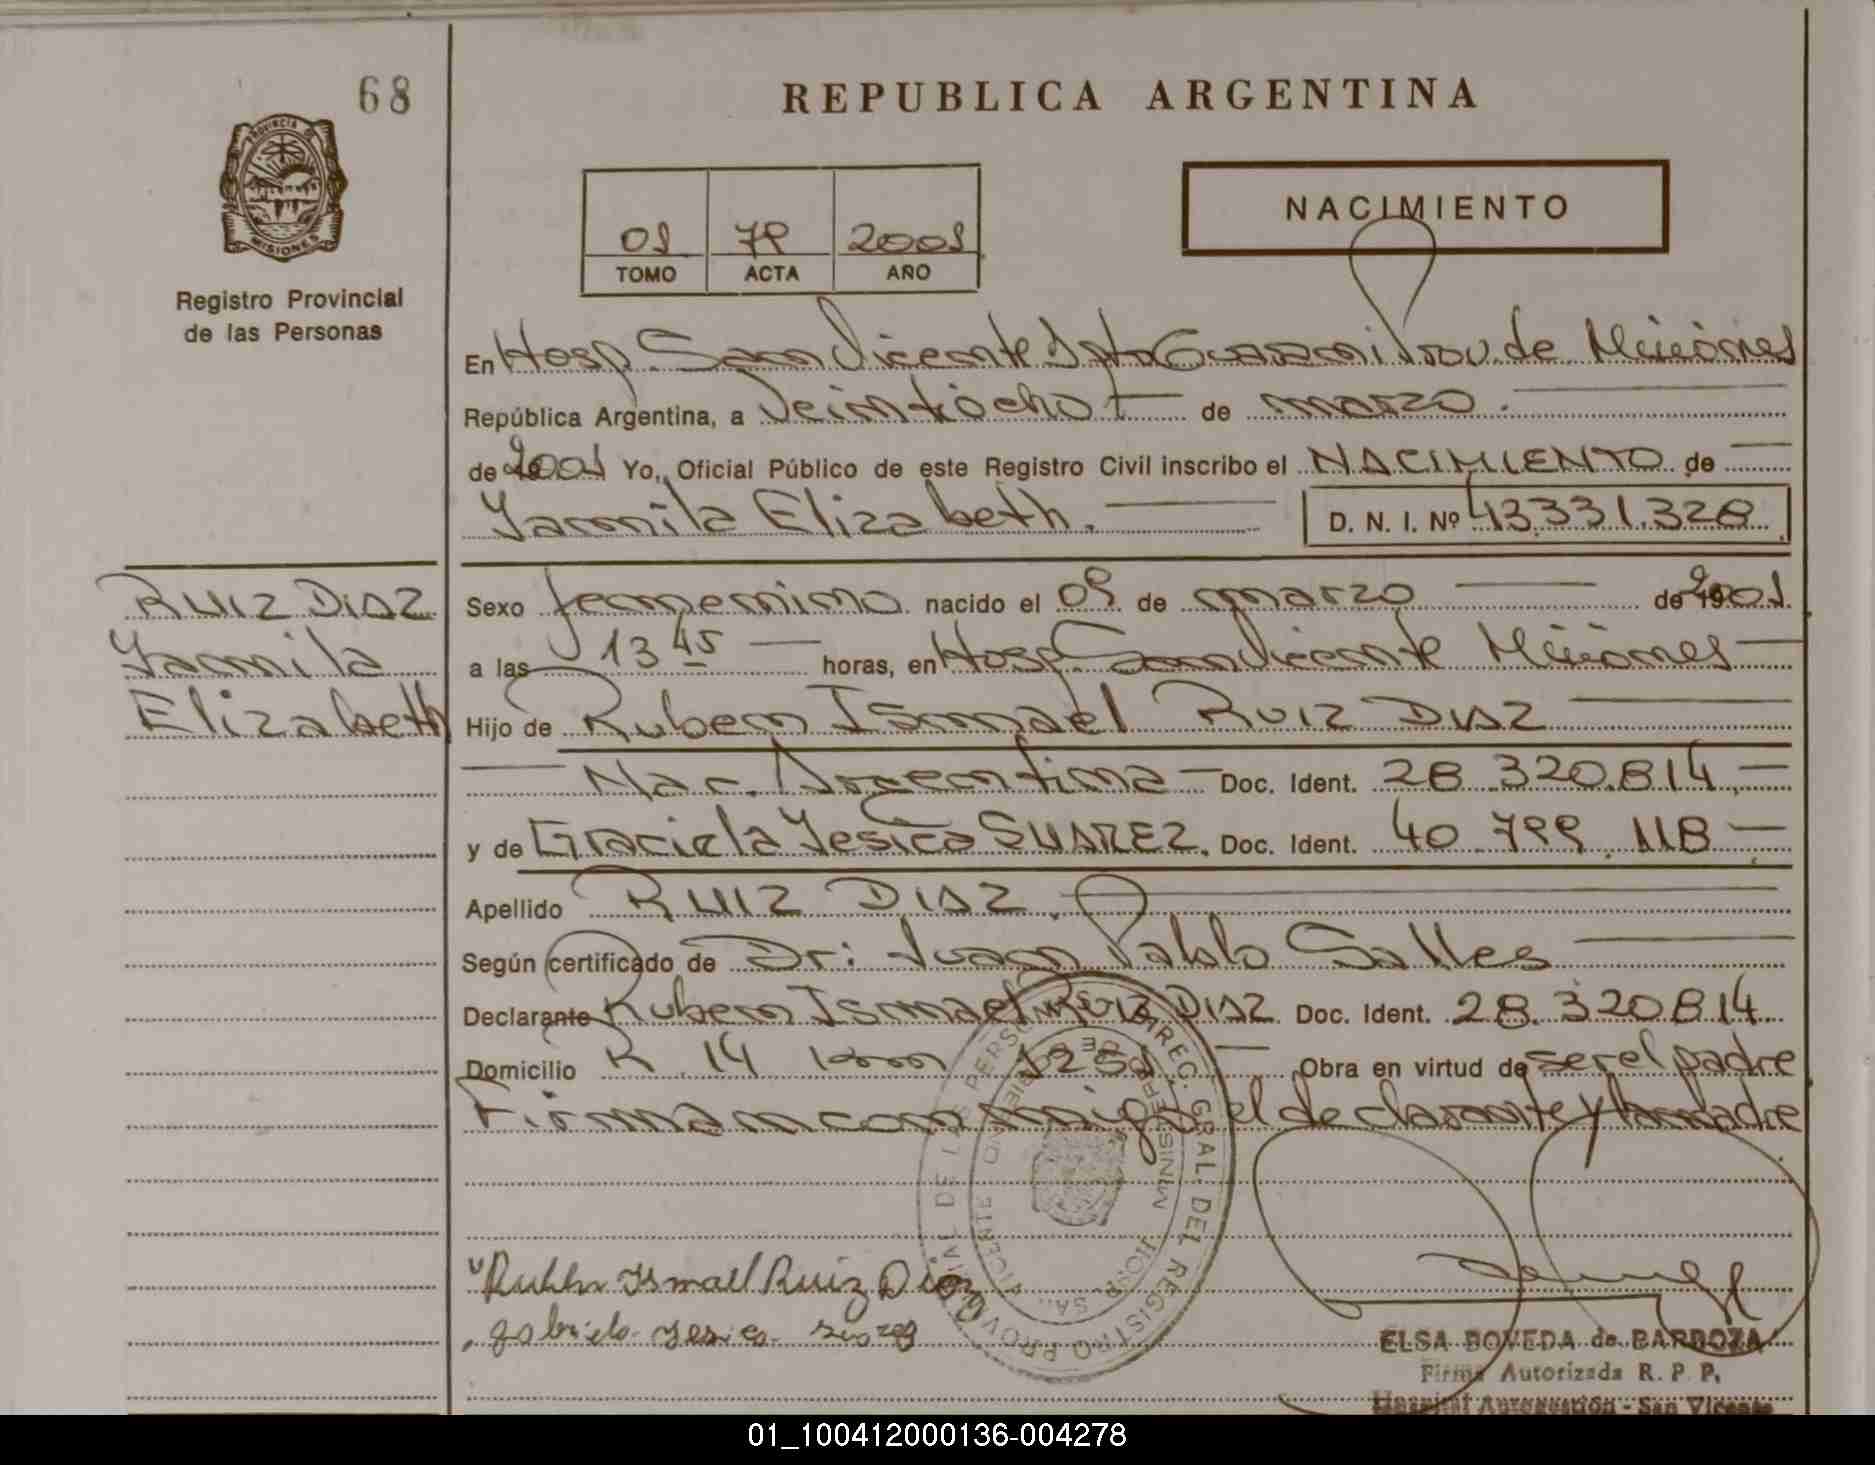 68
REPUBLICA ARGENTINA
PROVINCIA DE
MISIONES
Registro Provincial
de las Personas
NACIMIENTO
01 79 2001
TOMO ACTA AÑO
En Hosp. San Vicente Dpto Guarani Prov. de Misiones
República Argentina, a Veintiocho de marzo.
de 2001 Yo, Oficial Público de este Registro Civil inscribo el NACIMIENTO de
Yamila Elizabeth.
D. N. I. Nº 43.331.328
RUIZ DIAZ
Yamila
Elizabeth
Sexo femenino nacido el 09 de marzo de 2001.
a las 13 45 horas, en Hosp. San Vicente Misiones
Hijo de Ruben Ismael RUIZ DIAZ
Nac. Argentina Doc. Ident. 28.320.814
y de Graciela Yesica SUAREZ. Doc. Ident. 40.799.118
Apellido RUIZ DIAZ.
Según certificado de Dr: Juan Pablo Salles
Declarante Ruben Ismael RUIZ DIAZ Doc. Ident. 28.320.814
Domicilio R. 14 km 1251 Obra en virtud de ser el padre
Firman conmigo el declarante y la madre
Ruben Ismael Ruiz Diaz
Yesica Suarez
DIREC. GRAL. DEL REGISTRO PROVINCIAL DE LAS PERSONAS
ELSA BOVEDA de BARBOZA
Firma Autorizada R. P. P.
Hospital Autogestión - San Vicente
01_100412000136-004278